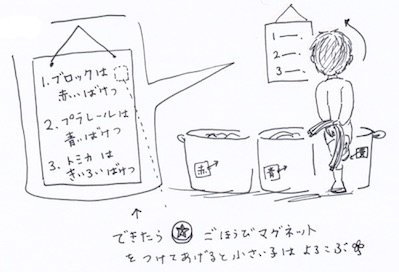 1. ブロックは
赤いばけつ
2. プラレールは
青いばけつ
3. トミカは
きいろいばけつ
1
2
3
赤
青
黄
できたら ごほうびマグネット
をつけてあげると小さい子はよろこぶ